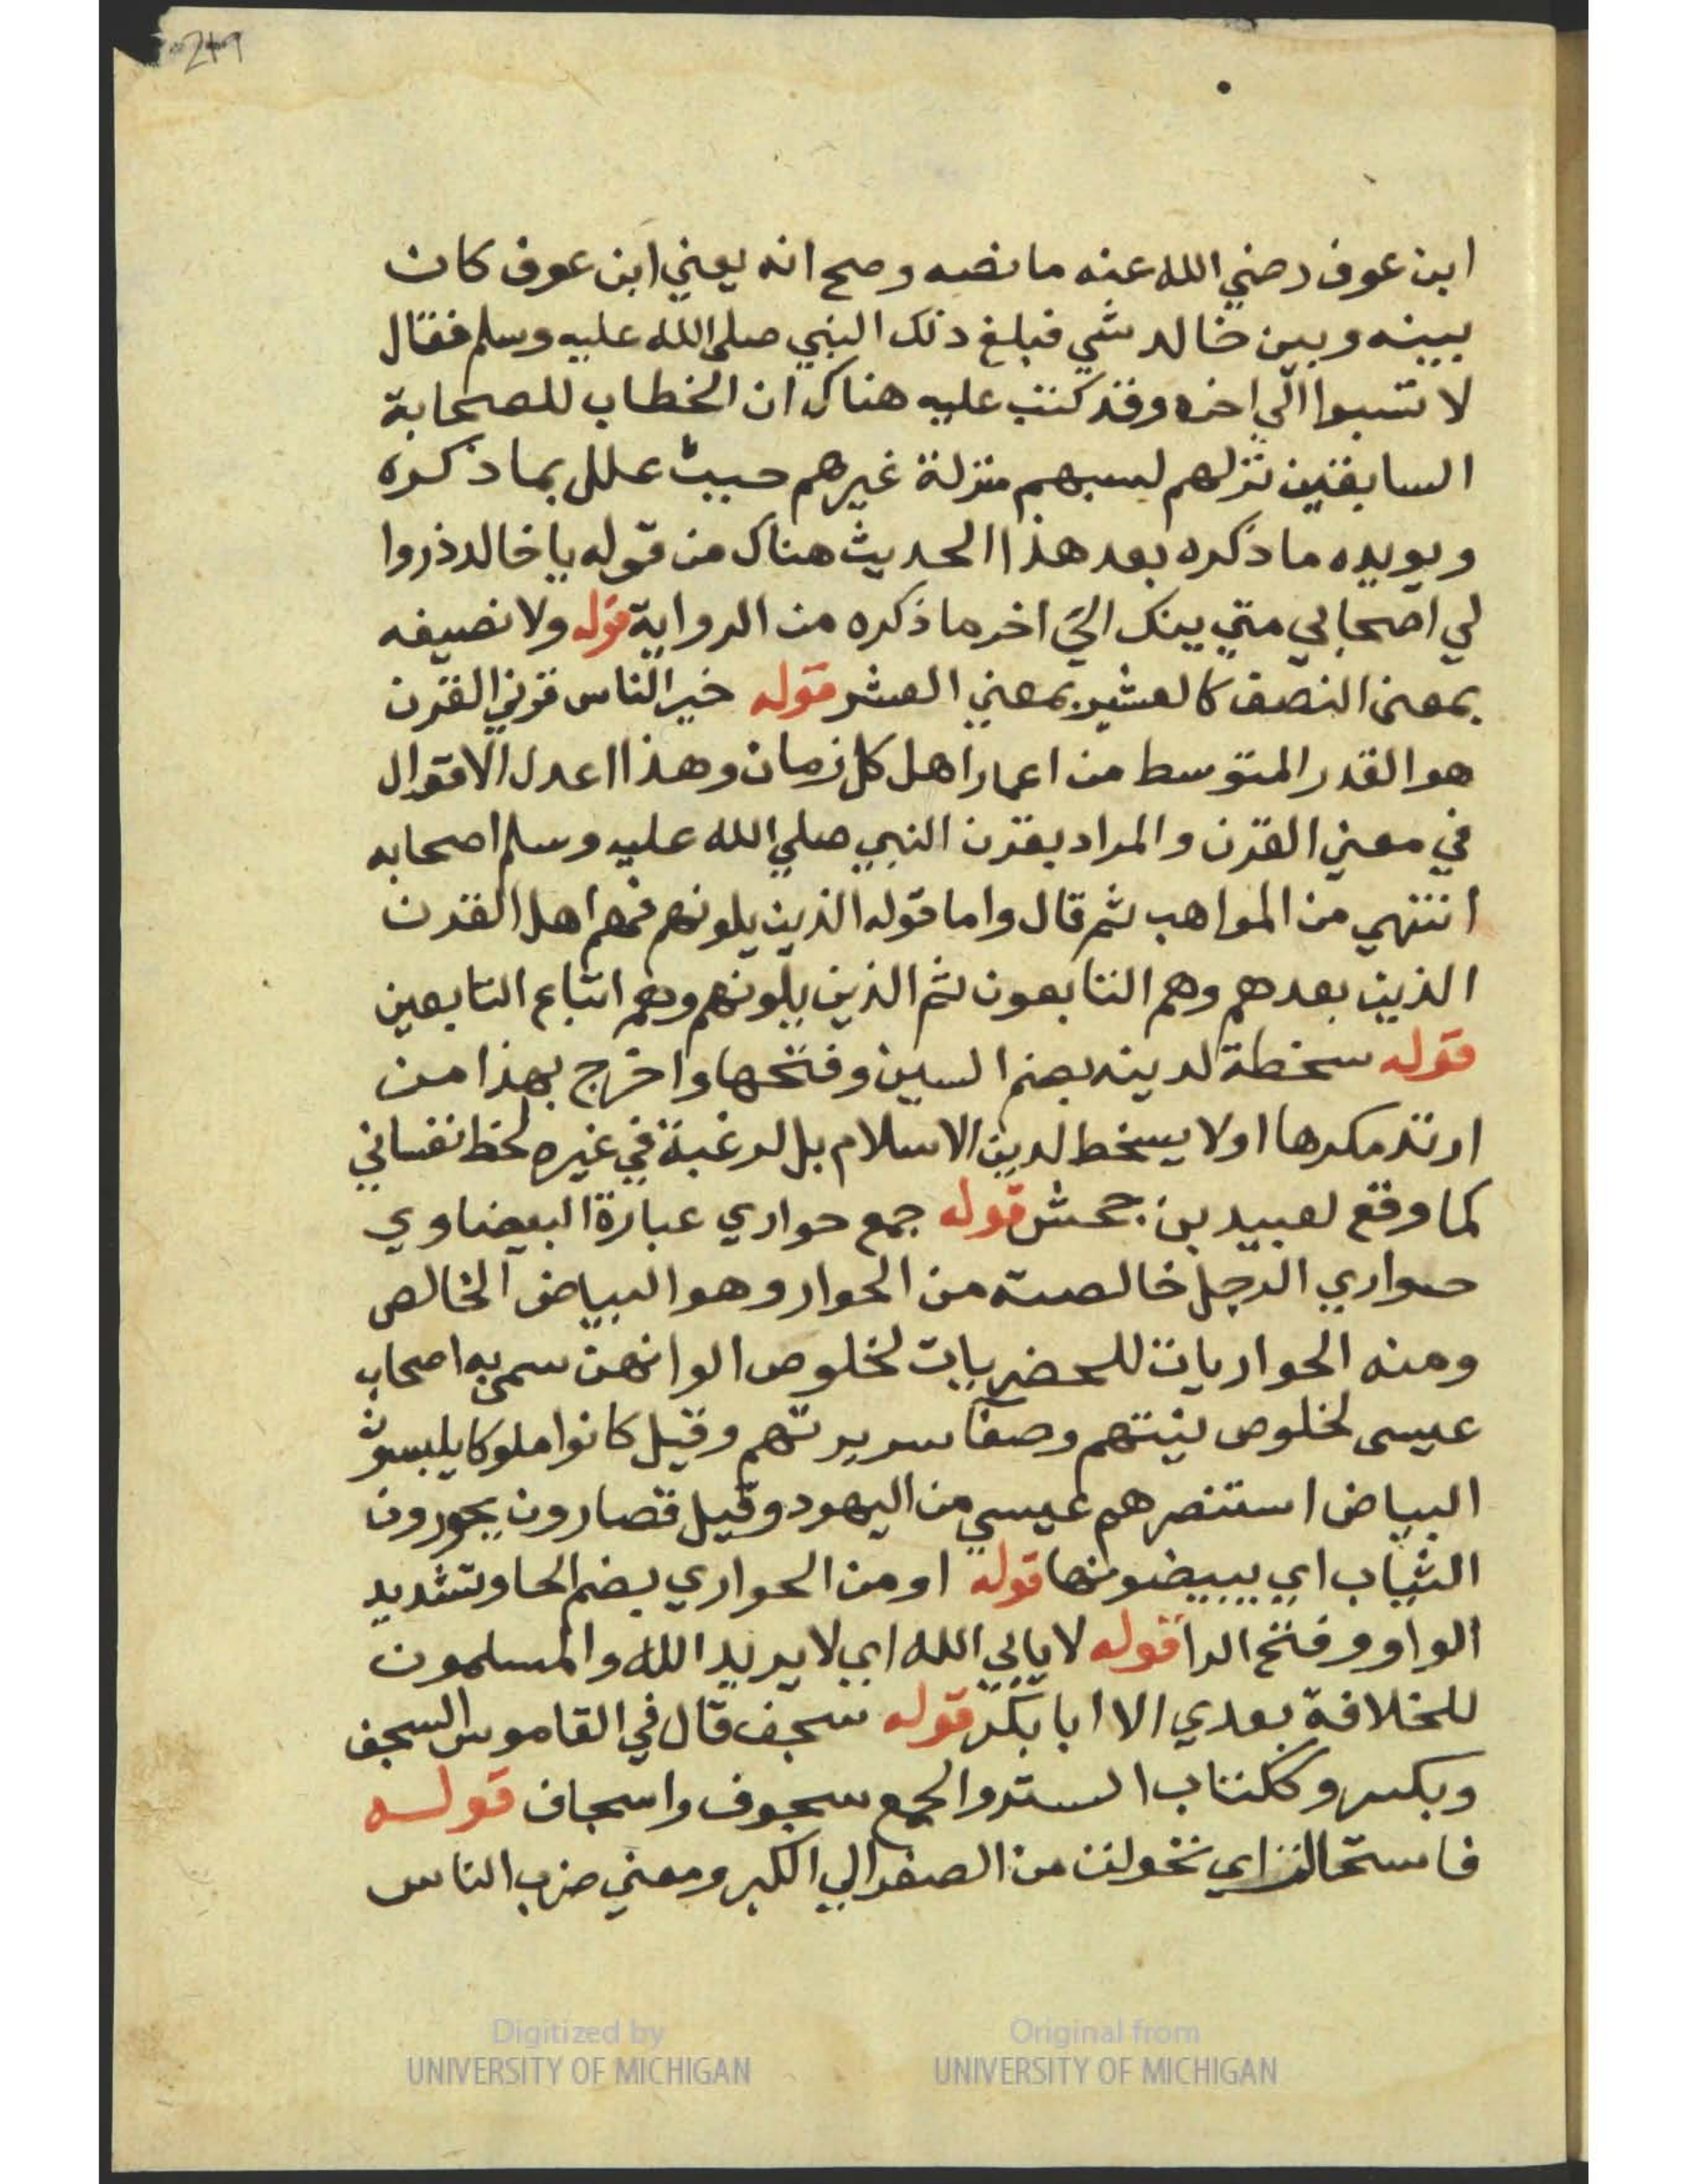 249
ابن عوف رضي الله عنه ما نصه وصح انه يعني ابن عوف كان
بينه وبين خالد شي فبلغ ذلك النبي صلى الله عليه وسلم فقال
لا تسبوا الي اخره وقد كتب عليه هناك ان الخطاب للصحابة
السابقين نزلهم لسبهم منزلة غيرهم حيث علل بما ذكره
ويويده ما ذكره بعد هذا الحديث هناك من قوله يا خالد ذروا
لي اصحابي متي ينك الي اخر ما ذكره من الرواية قوله ولا نصيفه
بمعنى النصف كالعشير بمعني العشر قوله خير الناس قرني القرن
هو القدر المتوسط من اعمار اهل كل زمان وهذا اعدل الاقوال
في معني القرن والمراد بقرن النبي صلي الله عليه وسلم اصحابه
انتهي من المواهب ثم قال واما قوله الذين يلونهم فهم اهل القرن
الذين بعدهم وهم التابعون ثم الذين يلونهم وهم اتباع التابعين
قوله سخطة لدينه بضم السين وفتحها واخرج بهذا من
ارتد مكرها اولا يسخط لدين الاسلام بل لرغبة في غيره لحظ نفساني
كما وقع لعبيد بن جحش قوله جمع حواري عبارة البيضاوي
حواري الرجل خالصته من الحوار وهو البياض الخالص
ومنه الحواريات للحضريات لخلوص الوانهن سمي به اصحاب
عيسى لخلوص نيتهم وصفا سريرتهم وقيل كانوا ملوكا يلبسون
البياض استنصرهم عيسي من اليهود وقيل قصارون يحورون
الثياب اي يبيضونها قوله او من الحواري بضم الحا وتشديد
الواو وفتح الرا قوله لا يابي الله اي لا يريد الله والمسلمون
للخلافة بعدي الا ابا بكر قوله سجف قال في القاموس السجف
وبكسر وككتاب الستر والجمع سجوف واسجاف قوله
فاستحالت اي تحولت من الصغر الي الكبر ومعني ضرب الناس
Digitized by
UNIVERSITY OF MICHIGAN
Original from
UNIVERSITY OF MICHIGAN